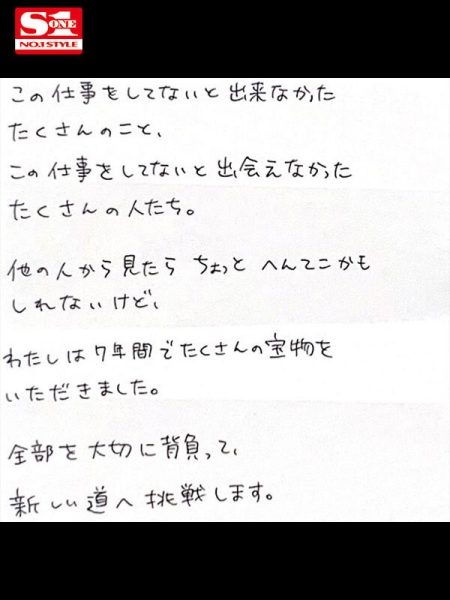 S ONE
NO.1 STYLE
この仕事をしてないと出来なかった
たくさんのこと、
この仕事をしてないと出会えなかった
たくさんの人たち。
他の人から見たら ちょっと へんてこかも
しれないけど、
わたしは7年間でたくさんの宝物を
いただきました。
全部を大切に背負って、
新しい道へ挑戦します。